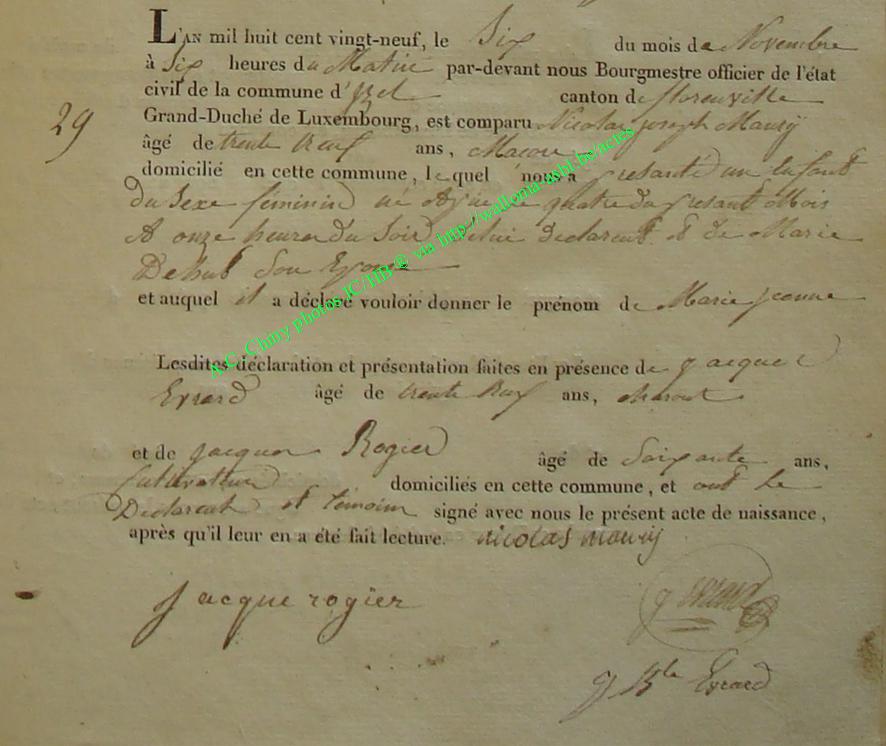 L'AN mil huit cent vingt-neuf, le Six du mois de Novembre
à Six heures du Matin par-devant nous Bourgmestre officier de l'état
civil de la commune d'Izel canton de florenville
29
Grand-Duché de Luxembourg, est comparu Nicolas joseph Maury
âgé de trente neuf ans, Macon
domicilié en cette commune, lequel nous a presanté un Enfant
du Sexe féminin né le quatre du presant Mois
A onze heures du Soir de lui declarent et de Marie
Dehut Son Epouse
et auquel il a déclaré vouloir donner le prénom de Marie jeanne
A.C. Chiny photos IC/HB ® via http://wallonia-asbl.be/actes
Lesdites déclaration et présentation faites en présence de jacques
Evrard âgé de trente neuf ans,
et de jacques Rogier âgé de Soixante ans,
Cultivatteur domiciliés en cette commune, et ont le
Declarent et témoins signé avec nous le présent acte de naissance,
après qu'il leur en a été fait lecture. nicolas maury
jacque rogier
j evrard
j Bte Evrard